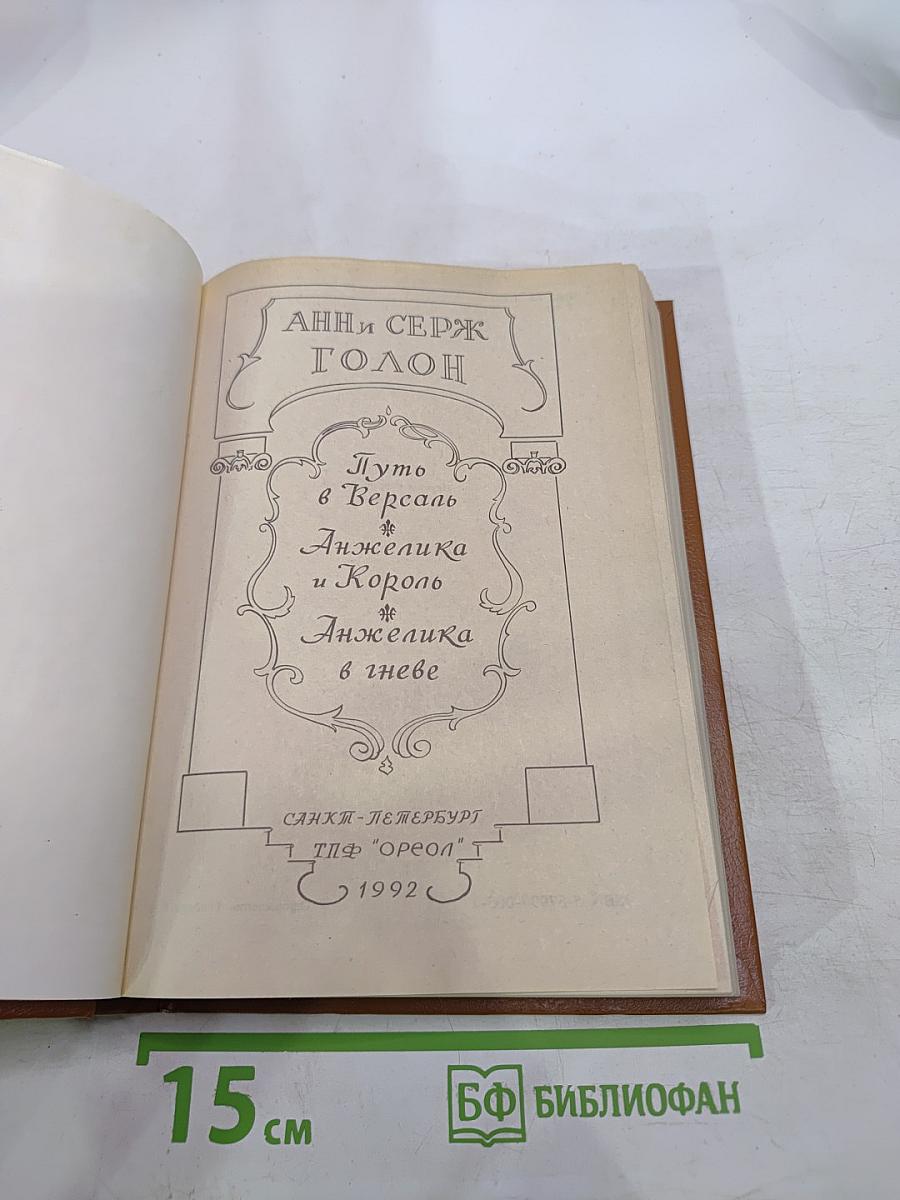 АНН и СЕРЖ
ГОЛОН
Путь
в Версаль
Анжелика
и Король
Анжелика
в гневе
САНКТ-ПЕТЕРБУРГ
ТПФ "ОРЕОЛ"
1992
15 см
БФ БИБЛИОФАН